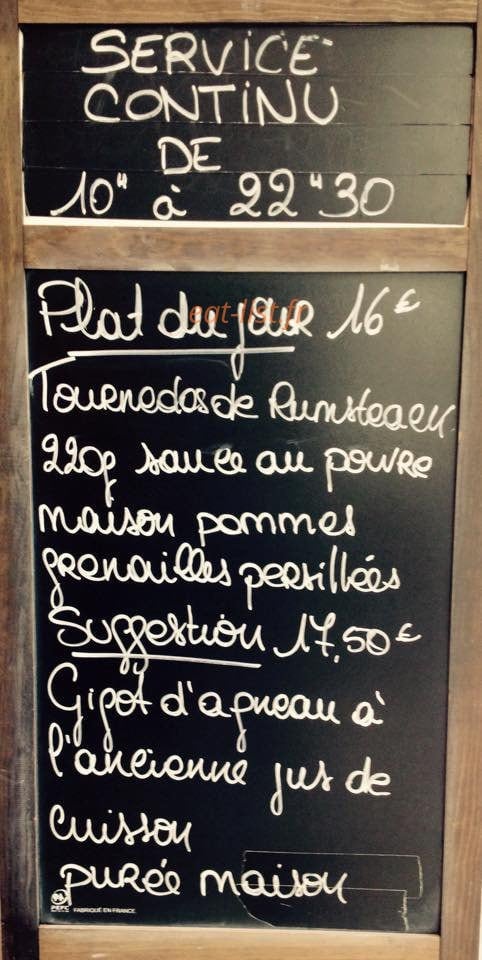 SERVICE
CONTINU
DE
10H à 22H30
Plat du jour 16€
eat-list.fr
Tournedos de Rumsteack
220g sauce au poivre
maison pommes
grenailles persillées
Suggestion 17,50€
Gigot d'agneau à
l'ancienne jus de
cuisson
purée maison
PEFC
FABRIQUÉ EN FRANCE